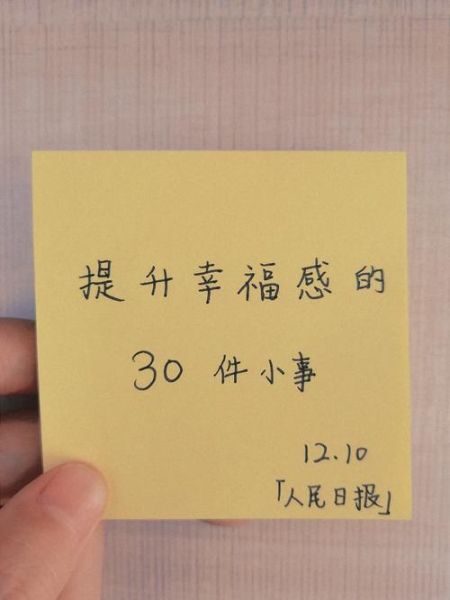 提升幸福感的
30 件小事
12.10
「人民日报」